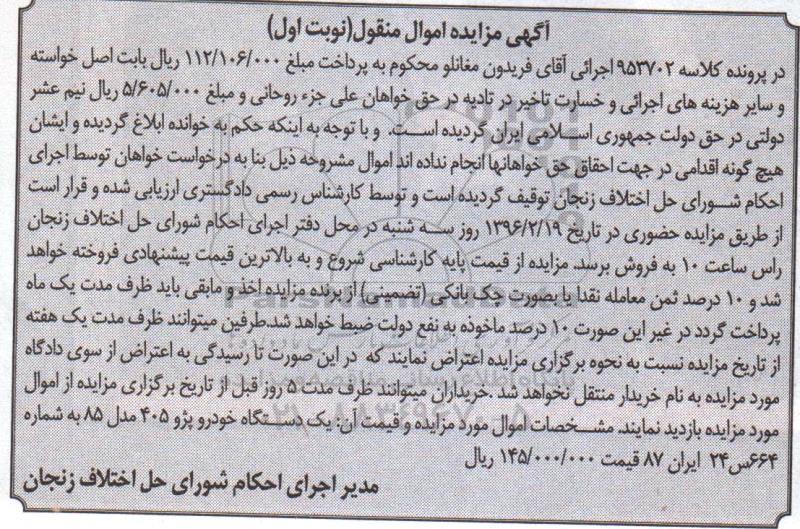 آگهی مزایده اموال منقول(نوبت اول)
در پرونده کلاسه ۹۵۳۷۰۲ اجرائی آقای فریدون مغانلو محکوم به پرداخت مبلغ ۱۱۲/۱۰۶/۰۰۰ ریال بابت اصل خواسته
و سایر هزینه های اجرائی و خسارت تاخیر در تادیه در حق خواهان علی جزء روحانی و مبلغ ۵/۶۰۵/۰۰۰ ریال نیم عشر
دولتی در حق دولت جمهوری اسلامی ایران گردیده است. و با توجه به اینکه حکم به خوانده ابلاغ گردیده و ایشان
هیچ گونه اقدامی در جهت احقاق حق خواهانها انجام نداده اند اموال مشروحه ذیل بنا به درخواست خواهان توسط اجرای
احکام شورای حل اختلاف زنجان توقیف گردیده است و توسط کارشناس رسمی دادگستری ارزیابی شده و قرار است
از طریق مزایده حضوری در تاریخ ۱۳۹۶/۲/۱۹ روز سه شنبه در محل دفتر اجرای احکام شورای حل اختلاف زنجان
راس ساعت ۱۰ به فروش برسد. مزایده از قیمت پایه کارشناسی شروع و به بالاترین قیمت پیشنهادی فروخته خواهد
شد و ۱۰ درصد ثمن معامله نقدا یا بصورت چک بانکی (تضمینی) از برنده مزایده اخذ و مابقی باید ظرف مدت یک ماه
پرداخت گردد در غیر این صورت ۱۰ درصد ماخوذه به نفع دولت ضبط خواهد شد.طرفین میتوانند ظرف مدت یک هفته
از تاریخ مزایده نسبت به نحوه برگزاری مزایده اعتراض نمایند که در این صورت تا رسیدگی به اعتراض از سوی دادگاه
مورد مزایده به نام خریدار منتقل نخواهد شد .خریداران میتوانند ظرف مدت ۵ روز قبل از تاریخ برگزاری مزایده از اموال
مورد مزایده بازدید نمایند. مشخصات اموال مورد مزایده و قیمت آن: یک دستگاه خودرو پژو ۴۰۵ مدل ۸۵ به شماره
۶۶۴س۲۴ ایران ۸۷ قیمت ۱۴۵/۰۰۰/۰۰۰ ریال
مدیر اجرای احکام شورای حل اختلاف زنجان